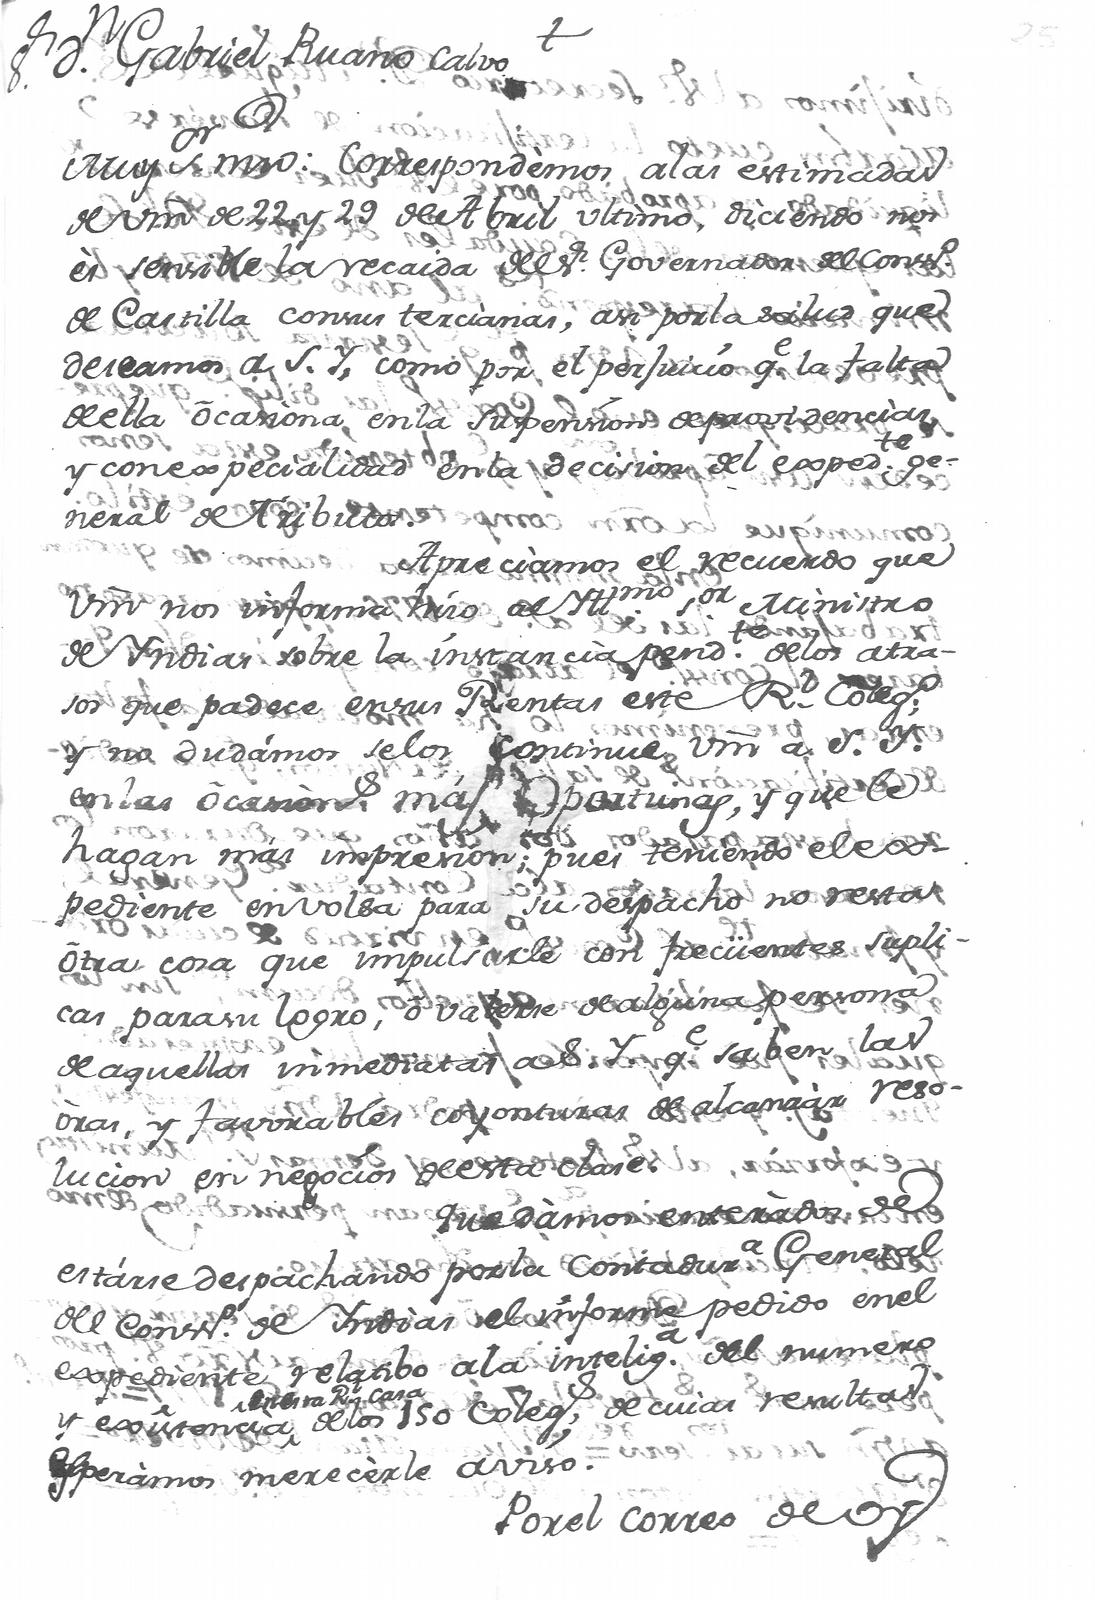 Sr. Dn. Gabriel Ruano Calvo
t
25
Muy Sor mio: Correspondèmos alas estimadas
de Vm̃ de 22 y 29 de Abril ultimo, diciendo nos
ès sensible la recaida del Sr. Governador del Conso.
de Castilla consus tercianas, asi porla salud que
deseamos a S. Y, como por el perjuicio qe. la falta
de ella òcasiona, enla suspensìon deprovidencias,
y conexpecialidad enla decision del expedte. ge-
neral de Tributos.
Apreciamos el recuerdo que
Vm̃ nos informa hizo al Yllmo. Sor Ministro
de Yndias sobre la ìnstancia pendte. delos atra-
sos que padece ensus Rentas este Rl. Colego;
y no dudámos selos Continue Vm̃ a S. Y.
enlas òcasions. más Oportunas, y que le
hagan màs impresiòn; pues teniendo el ex-
pediente en volsa para su despacho no resta
òtra cosa que impulsarle con freqüentes supli-
cas parasu logro, ò valerse de alguna persona
de aquellas inmediatas a S. Y. qe. saben las
òras, y favorables coyonturas de alcanzàr reso-
lucion en negocios de esta clase.
Quedàmos enteràdos de
estárse despachando porla Contadura. General
del Conso. de Yndias el informe pedido enel
expediente relatibo ala inteliga. del numero
y exìstencia delos 150 Colegs, de cuias resultas
enesta Rl. Casa
Esperàmos merecèrle aviso.
Porel correo de oy